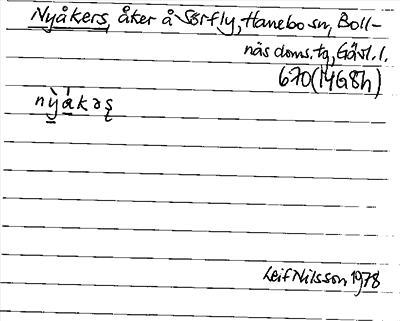 Nyåkers, åker å Sörfly, Hanebo sn, Boll-
näs doms. tg, Gävl. l.
670(14G8h)
nỳákəʂ
Leif Nilsson 1978